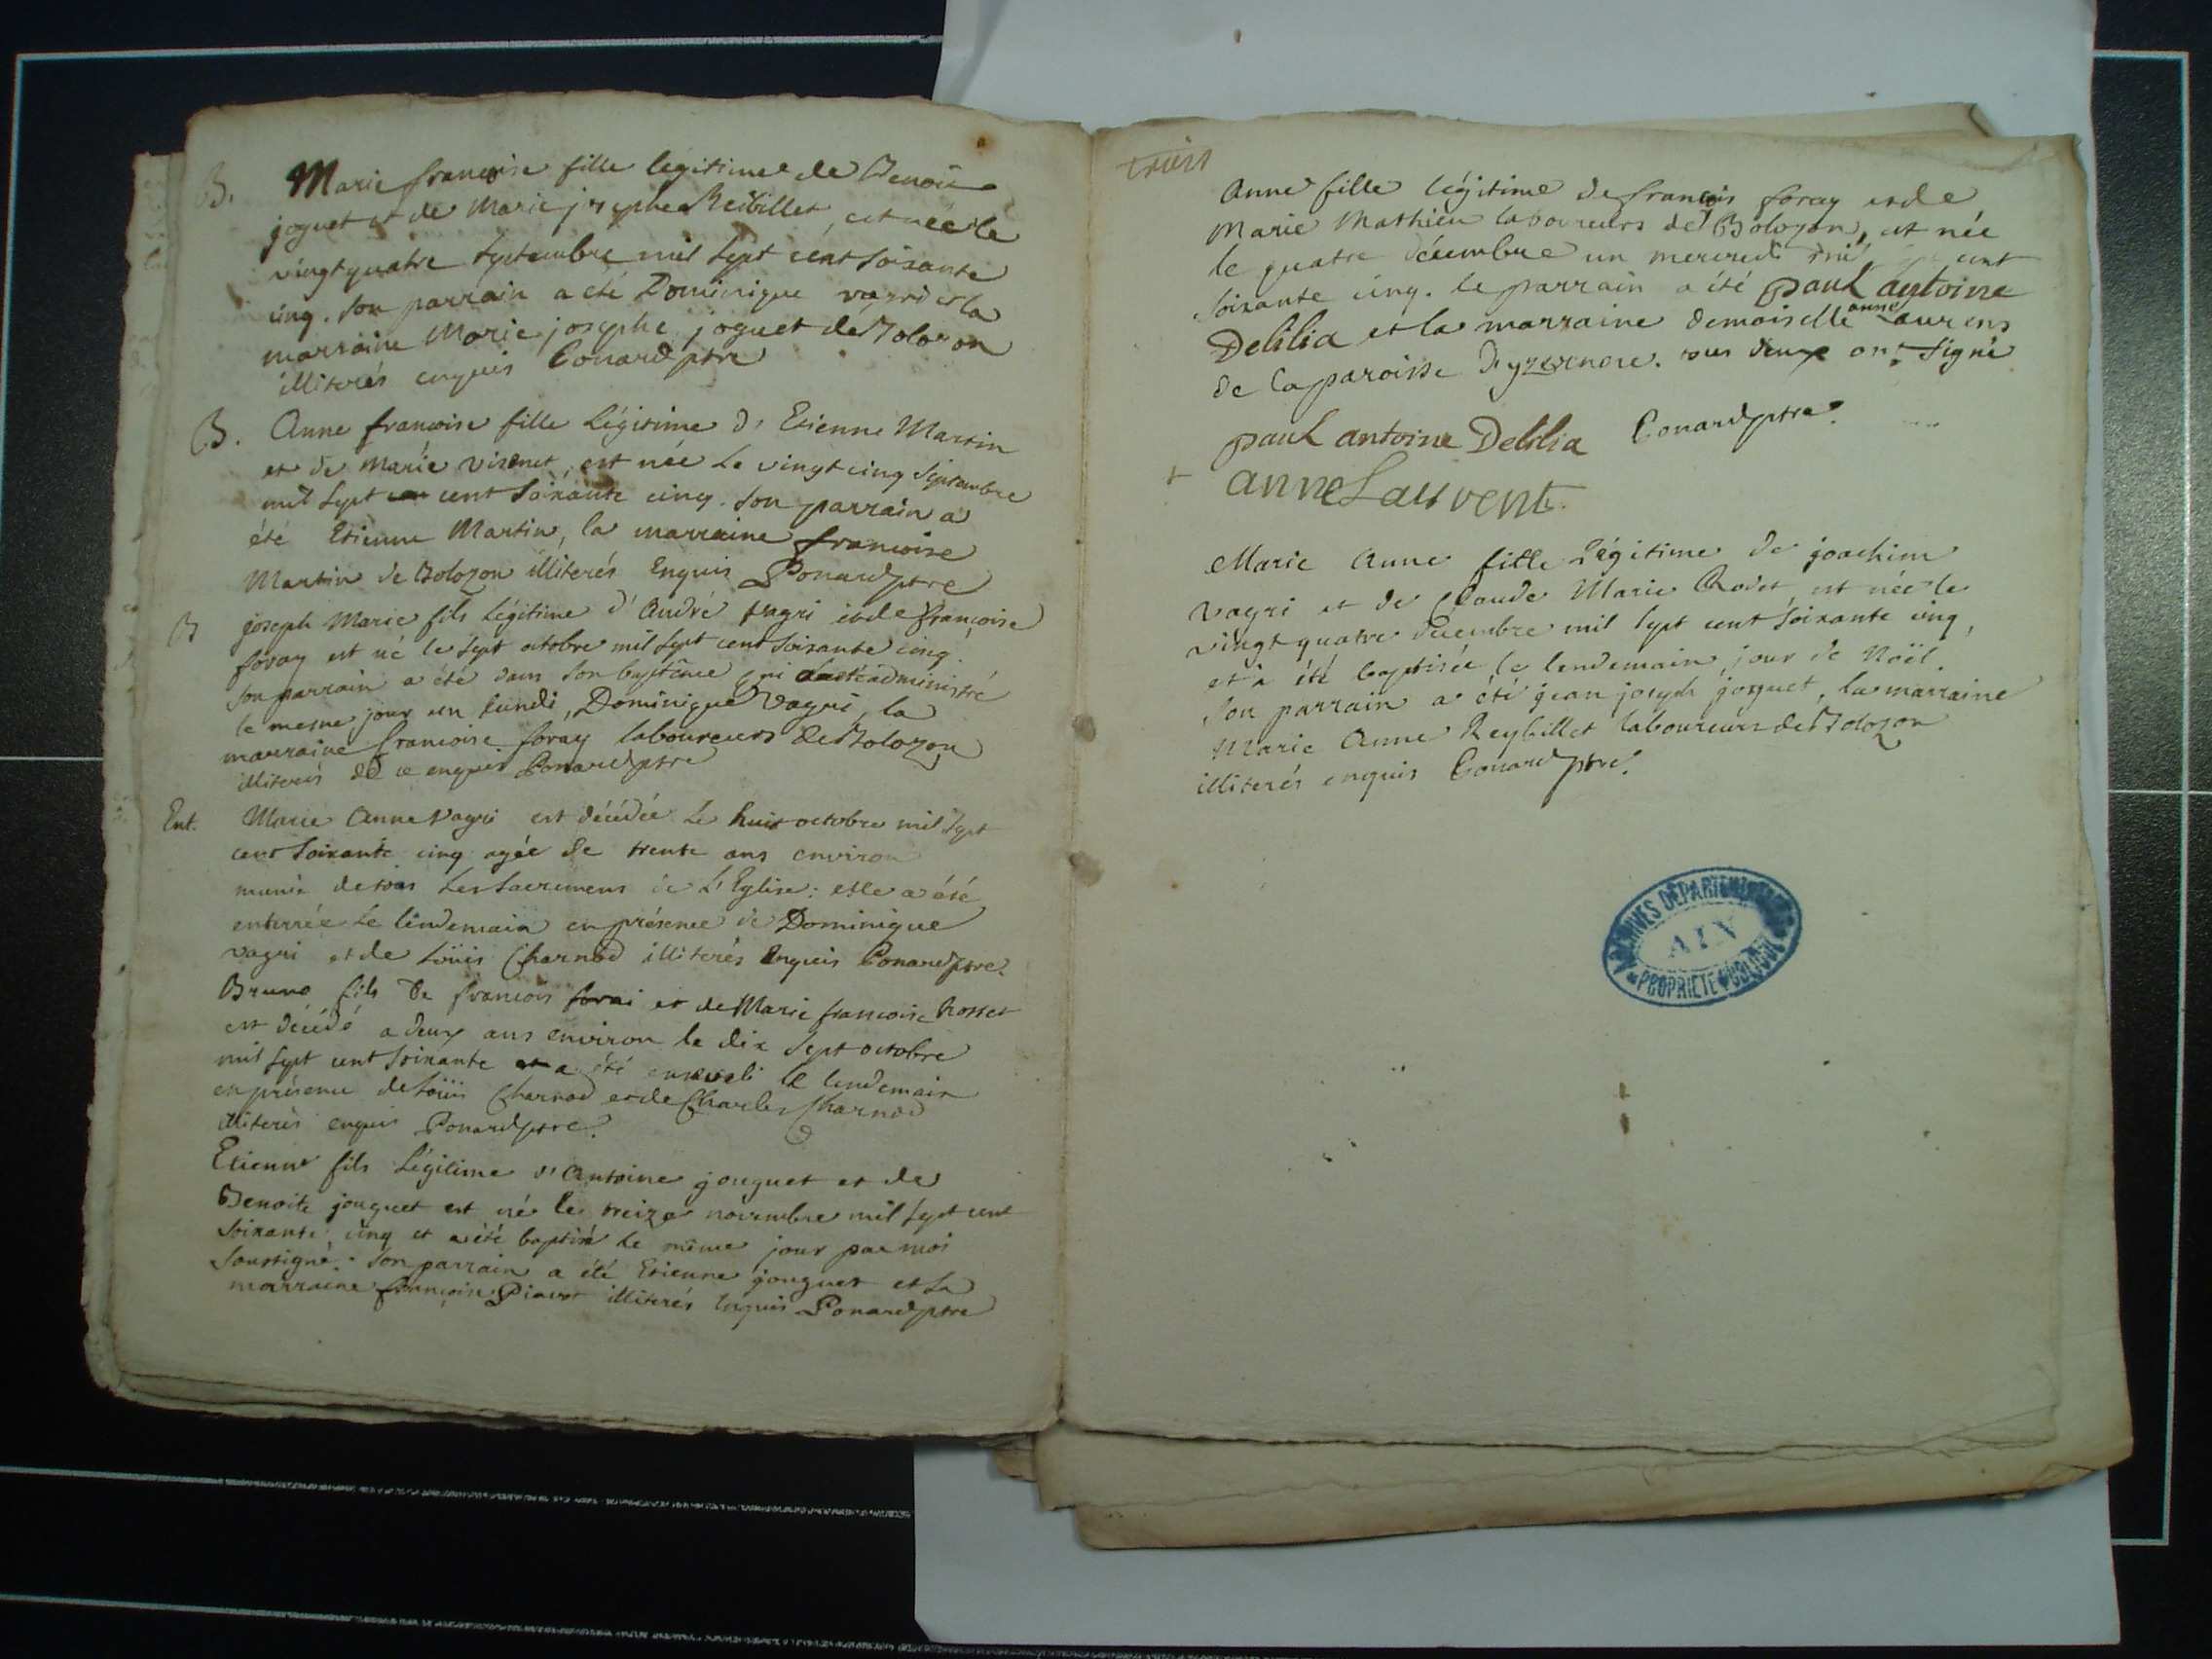 B. Marie françoise fille legitime de Benoit
joguet et de Marie josephe Reibillet, est née le
vingt quatre septembre mil sept cent soixante
cinq. son parrain a été Dominique vagri et la
marraine Marie josephe joguet de Bolozon
illiterés enquis Ponard ptre
B. Anne françoise fille Légitime d'Etienne Martin
et de Marie est née le vingt cinq septembre
mil sept cent soixante cinq. son parrain a
été Etienne Martin, la marraine françoise
Martin de Bolozon illiterés Enquis Ponard ptre
B joseph Marie fils Légitime d'André vagri et de françoise
foray est né le sept octobre mil sept cent soixante cinq.
son parrain a été dans son baptême qui administré
le mesme jour un lundi, Dominique vagri, la
marraine françoise foray laboureurs de Bolozon
illiterés de ce enquis Ponard ptre
Ent. Marie Anne vagri est décédée Le huit octobre mil sept
cent soixante cinq agée de trente ans environ
munie de tous Les sacremens de L'Eglise: elle a été
enterrée Le lendemain en présence de Dominique
vagri et de Loüis Charnod illiterés Enquis Ponard ptre.
Bruno fils De francois forai et de Marie francoise
est décédé a deux ans environ le dix sept octobre
mil sept cent soixante et a été enseveli le lendemain
en présence de Loüis Charnod et de Charles Charnod
illiterés enquis Ponard ptre.
Etienne fils Légitime d'Antoine jouguet et de
Benoite jouguet est né le treize novembre mil sept cent
soixante cinq et a été baptisé le même jour par moi
soussigné. son parrain a été Etienne jouguet et la
marraine françoise illiterés enquis Ponard ptre
trois
Anne fille légitime de françois foray et de
Marie Mathieu laboureurs de Bolozon, est née
le quatre décembre un mercredi mil cent
soixante cinq. le parrain a été paul antoine
Delilia et la marraine demoiselle anne Laurens
de la paroisse d'yzernore. tous deux ont signé
paul antoine Delilia Ponard ptre.
anne Laurent
Marie Anne fille Légitime de joachim
vagri et de Claude Marie Rodet, est née le
vingt quatre décembre mil sept cent soixante cinq,
et a été baptisée le lendemain, jour de Noël.
son parrain a été jean joseph jouguet, la marraine
Marie Anne Reybillet laboureurs de Bolozon
illiterés enquis Ponard ptre.
ARCHIVES DÉPARTEMENTALES
AIN
PROPRIÉTÉ PUBLIQUE